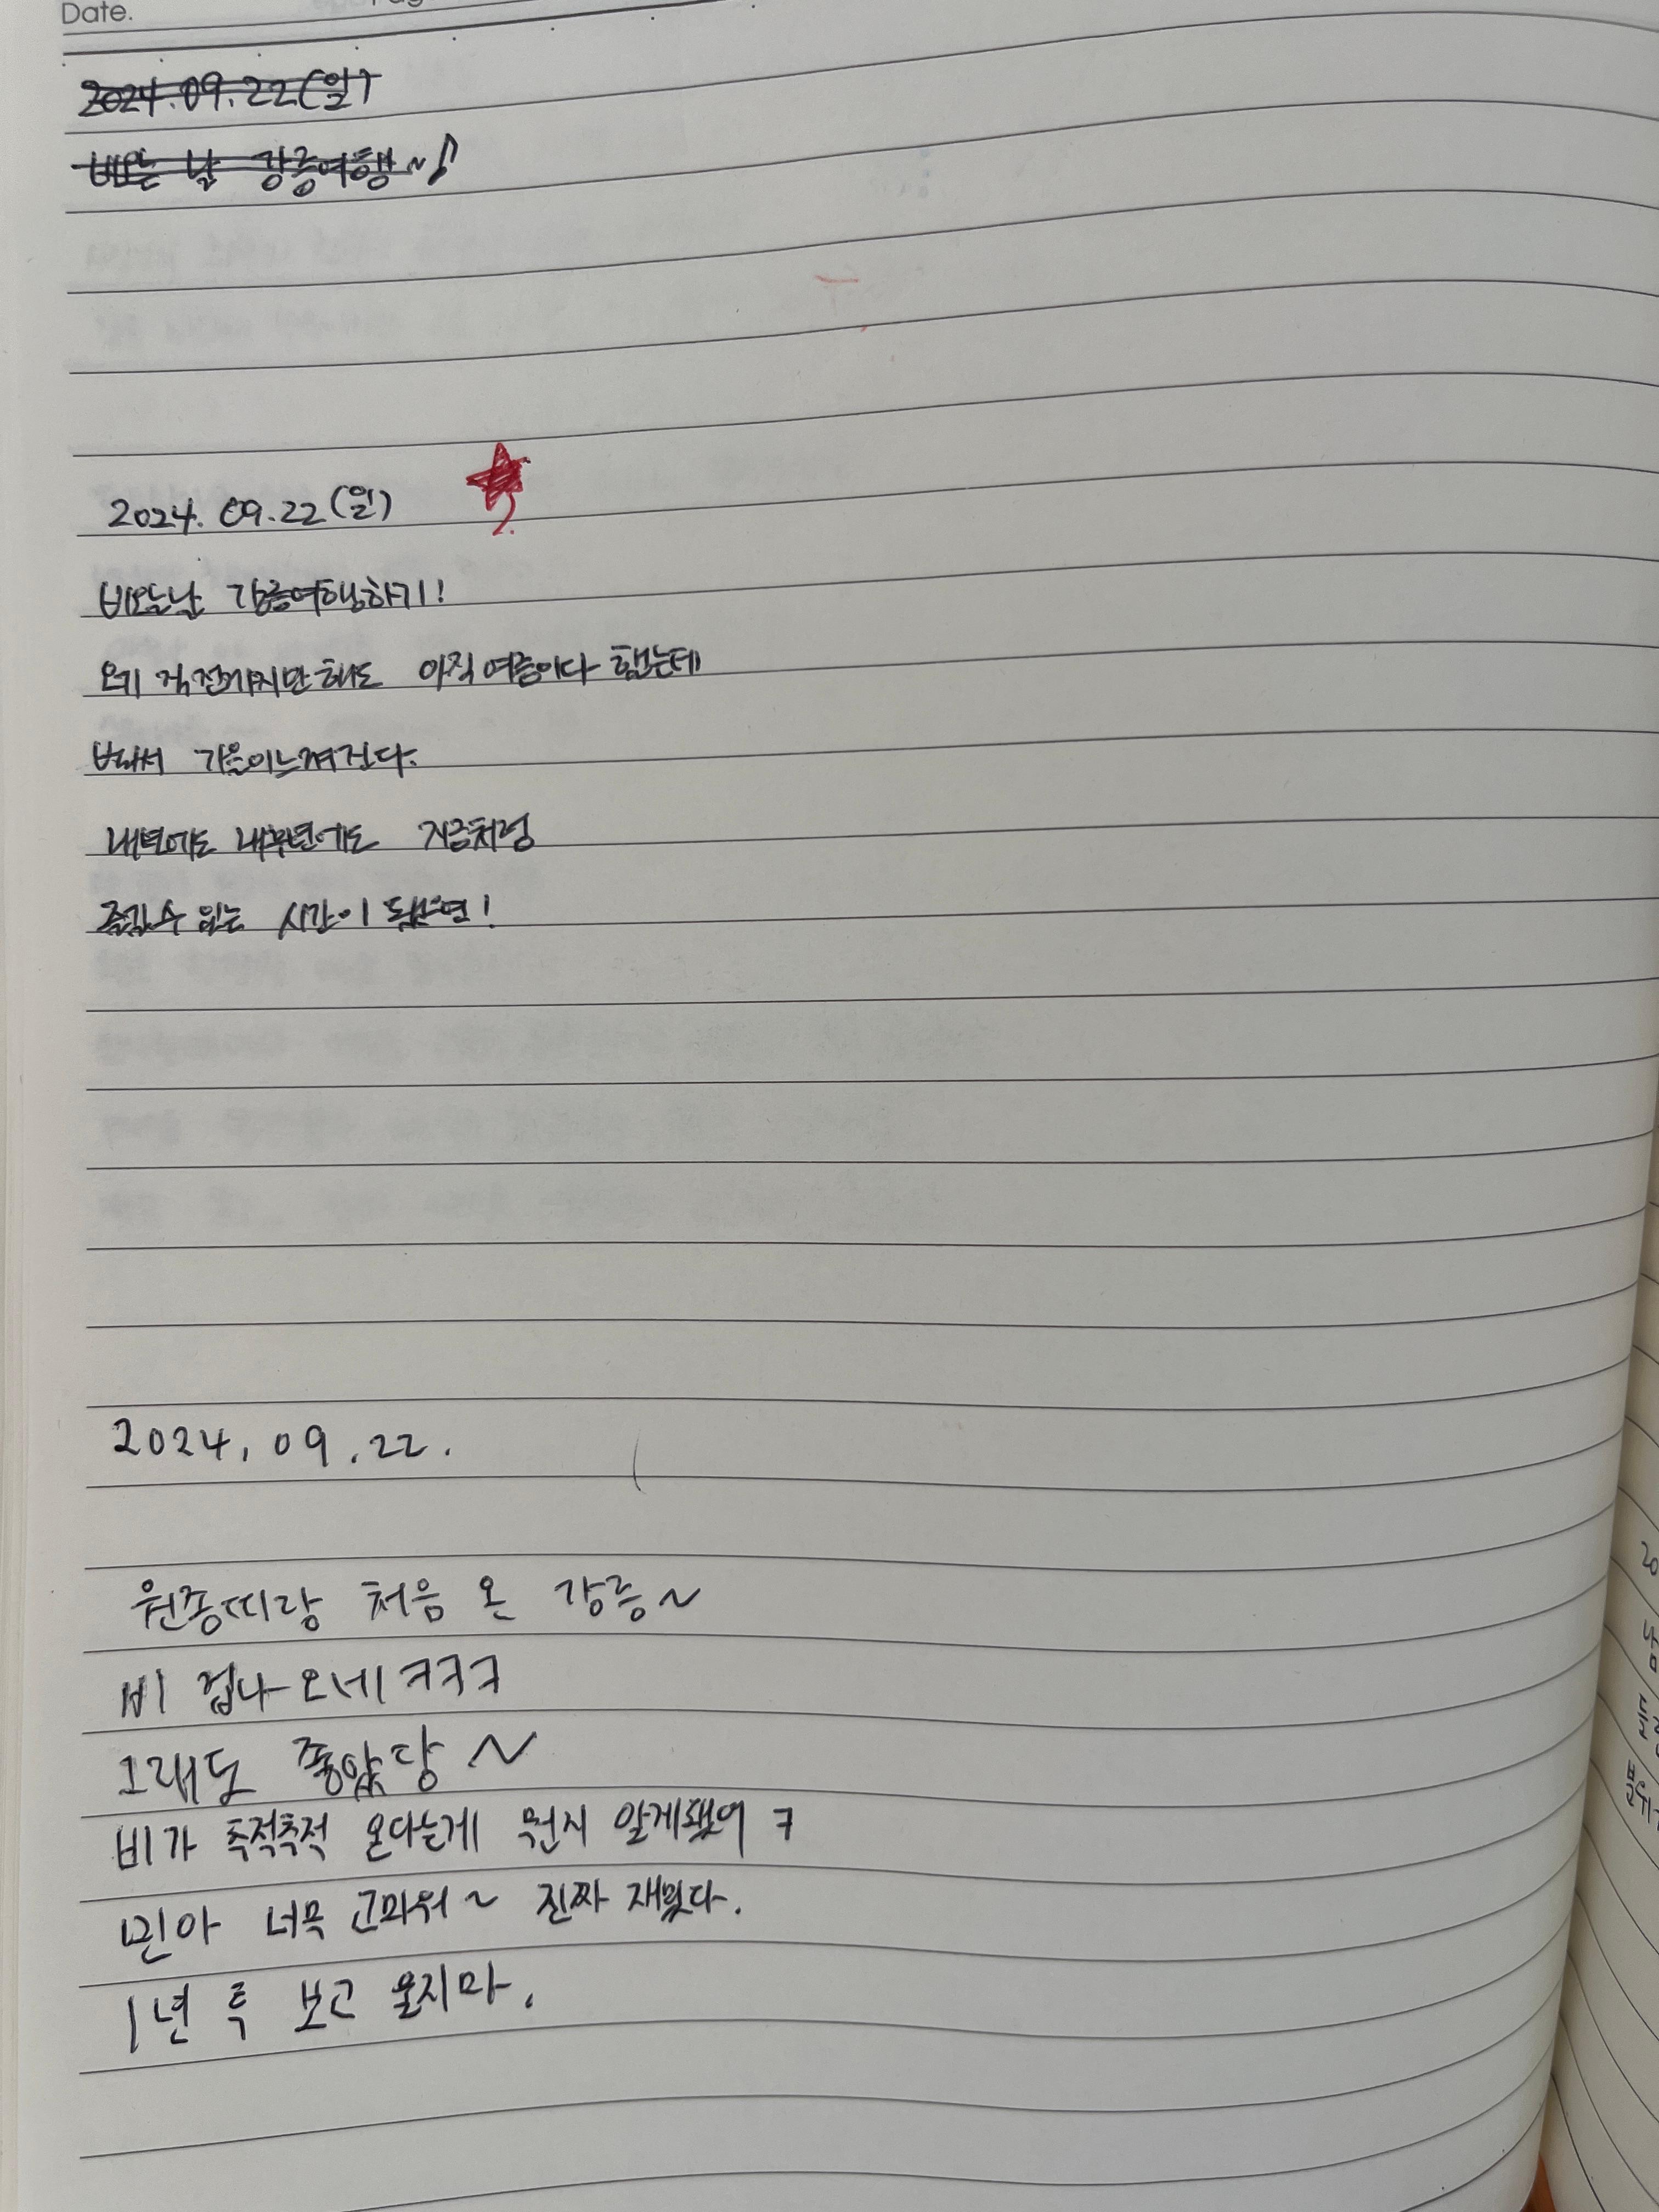 Date.
2024.09.22(일)
비오는 날 강릉여행~♪
2024.09.22(일)
비오는날 강릉여행하기!
오기 직전까지만해도 아직 여름이다 했는데
벌써 가을이느껴진다.
내년에도 내후년에도 지금처럼
즐길수 있는 시간이 됐으면!
2024.09.22.
원종띠랑 처음 온 강릉~
비 겁나 오네 ㅋㅋㅋ
그래도 좋았당~
비가 추적추적 온다는게 뭔지 알게됐어 ㅋ
민아 너무 고마워~ 진짜 재밌다.
1년 후 보고 울지마.